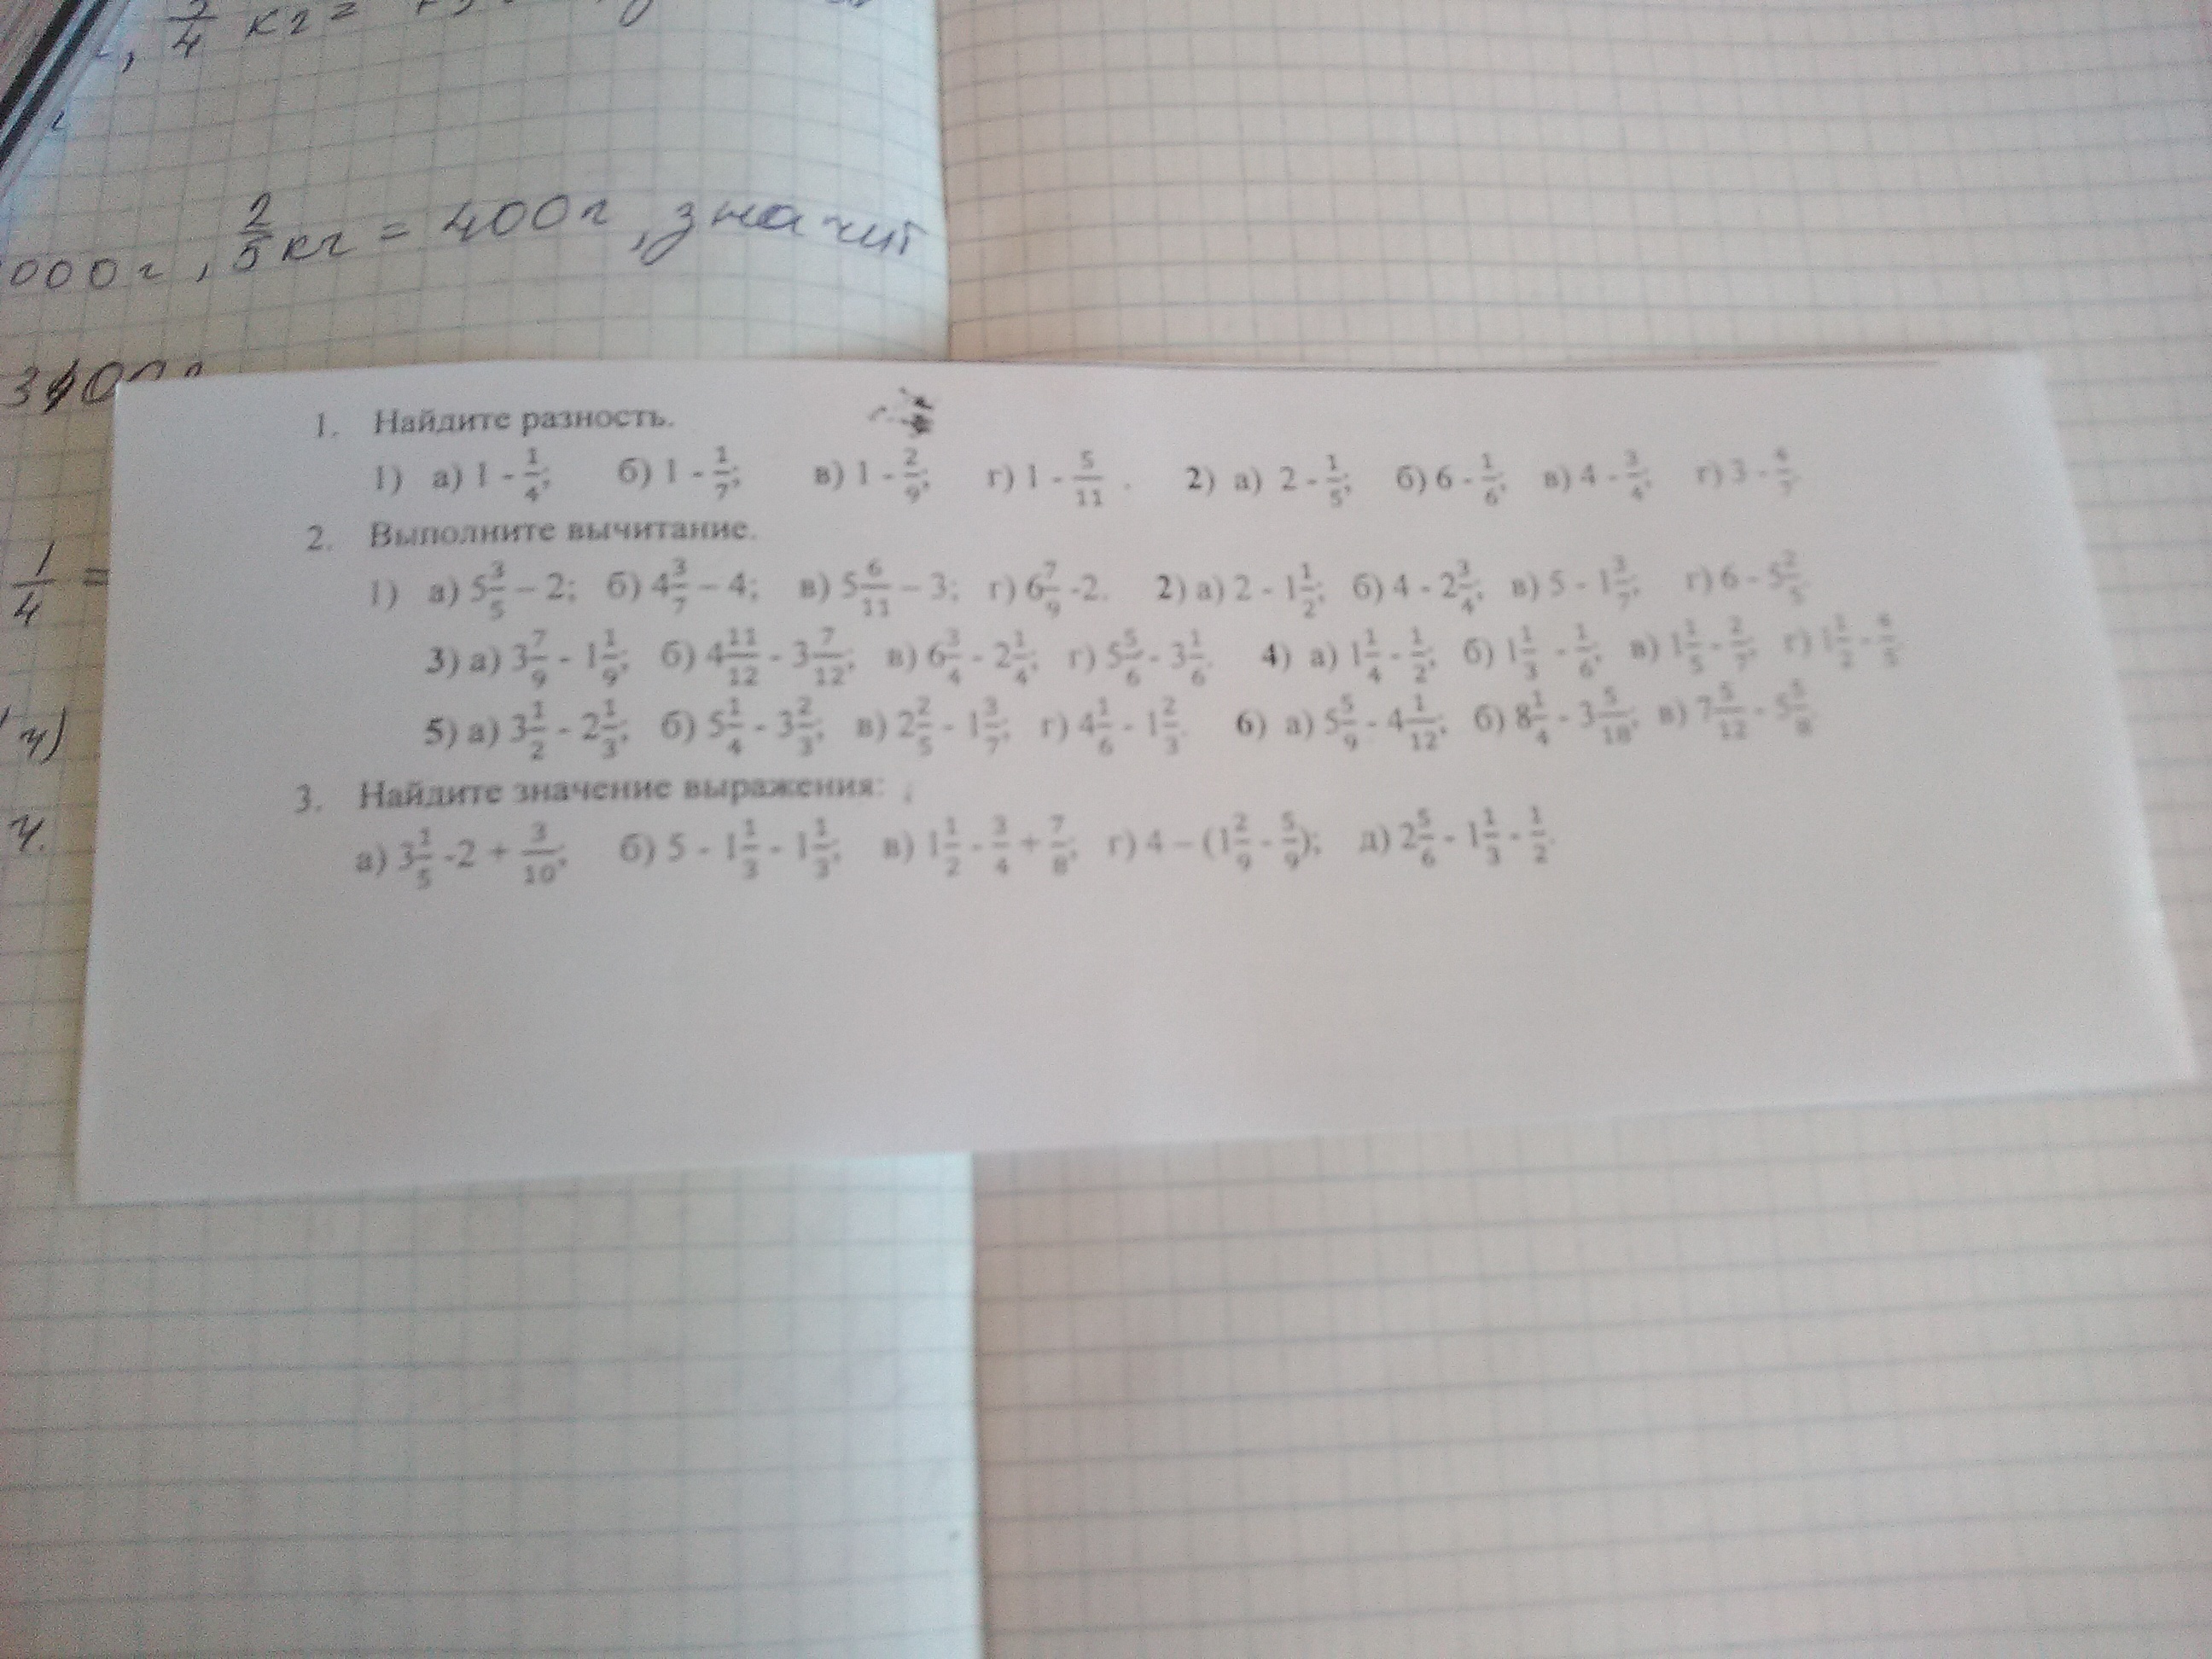 кг =
000г, 2/5 кг = 400г, значит
3400г
1/4 =
ч)
ч.
1. Найдите разность.
1) а) 1 - 1/4; б) 1 - 1/7; в) 1 - 2/9; г) 1 - 5/11 . 2) а) 2 - 1/5; б) 6 - 1/6; в) 4 - 3/4; г) 3 -
2. Выполните вычитание.
1) а) 5 3/5 – 2; б) 4 3/7 – 4; в) 5 6/11 – 3; г) 6 7/9 -2. 2) а) 2 - 1 1/2; б) 4 - 2 3/4; в) 5 - 1 3/7; г) 6 - 5 2/5.
3) а) 3 7/9 - 1 1/9; б) 4 11/12 - 3 7/12; в) 6 3/4 - 2 1/4; г) 5 5/6 - 3 1/6. 4) а) 1 1/4 - 1/2; б) 1 1/3 - 1/6; в) 1 1/5 - 2/7; г) 1 1/2 -
5) а) 3 1/2 - 2 1/3; б) 5 1/4 - 3 2/3; в) 2 2/5 - 1 3/7; г) 4 1/6 - 1 2/3. 6) а) 5 5/9 - 4 1/12; б) 8 1/4 - 3 5/18; в) 7 5/12 - 5 5/8.
3. Найдите значение выражения:
а) 3 1/5 -2 + 3/10; б) 5 - 1 1/3 - 1 1/3; в) 1 1/2 - 3/4 + 7/8; г) 4 – (1 2/9 - 5/9); д) 2 5/6 - 1 1/3 - 1/2.